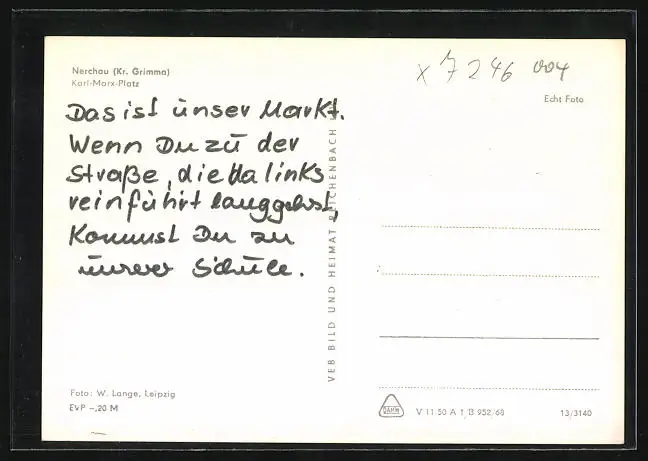 Nerchau (Kr. Grimma)
Karl-Marx-Platz
x 7 246 004
Echt Foto
Das ist unser Markt.
Wenn Du zu der
Straße, die da links
reinführt langgehst,
kommst Du zu
unserer Schule.
VEB BILD UND HEIMAT REICHENBACH
Foto: W. Lange, Leipzig
EVP –,20 M
DAMW
V 11 50 A 1/B 952/68
13/3140